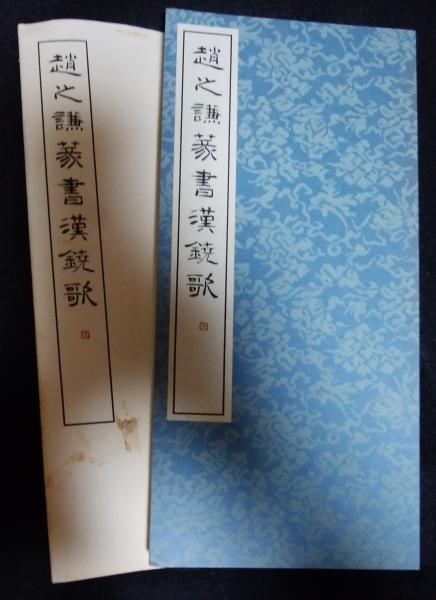 趙之謙篆書漢鐃歌
趙之謙篆書漢鐃歌